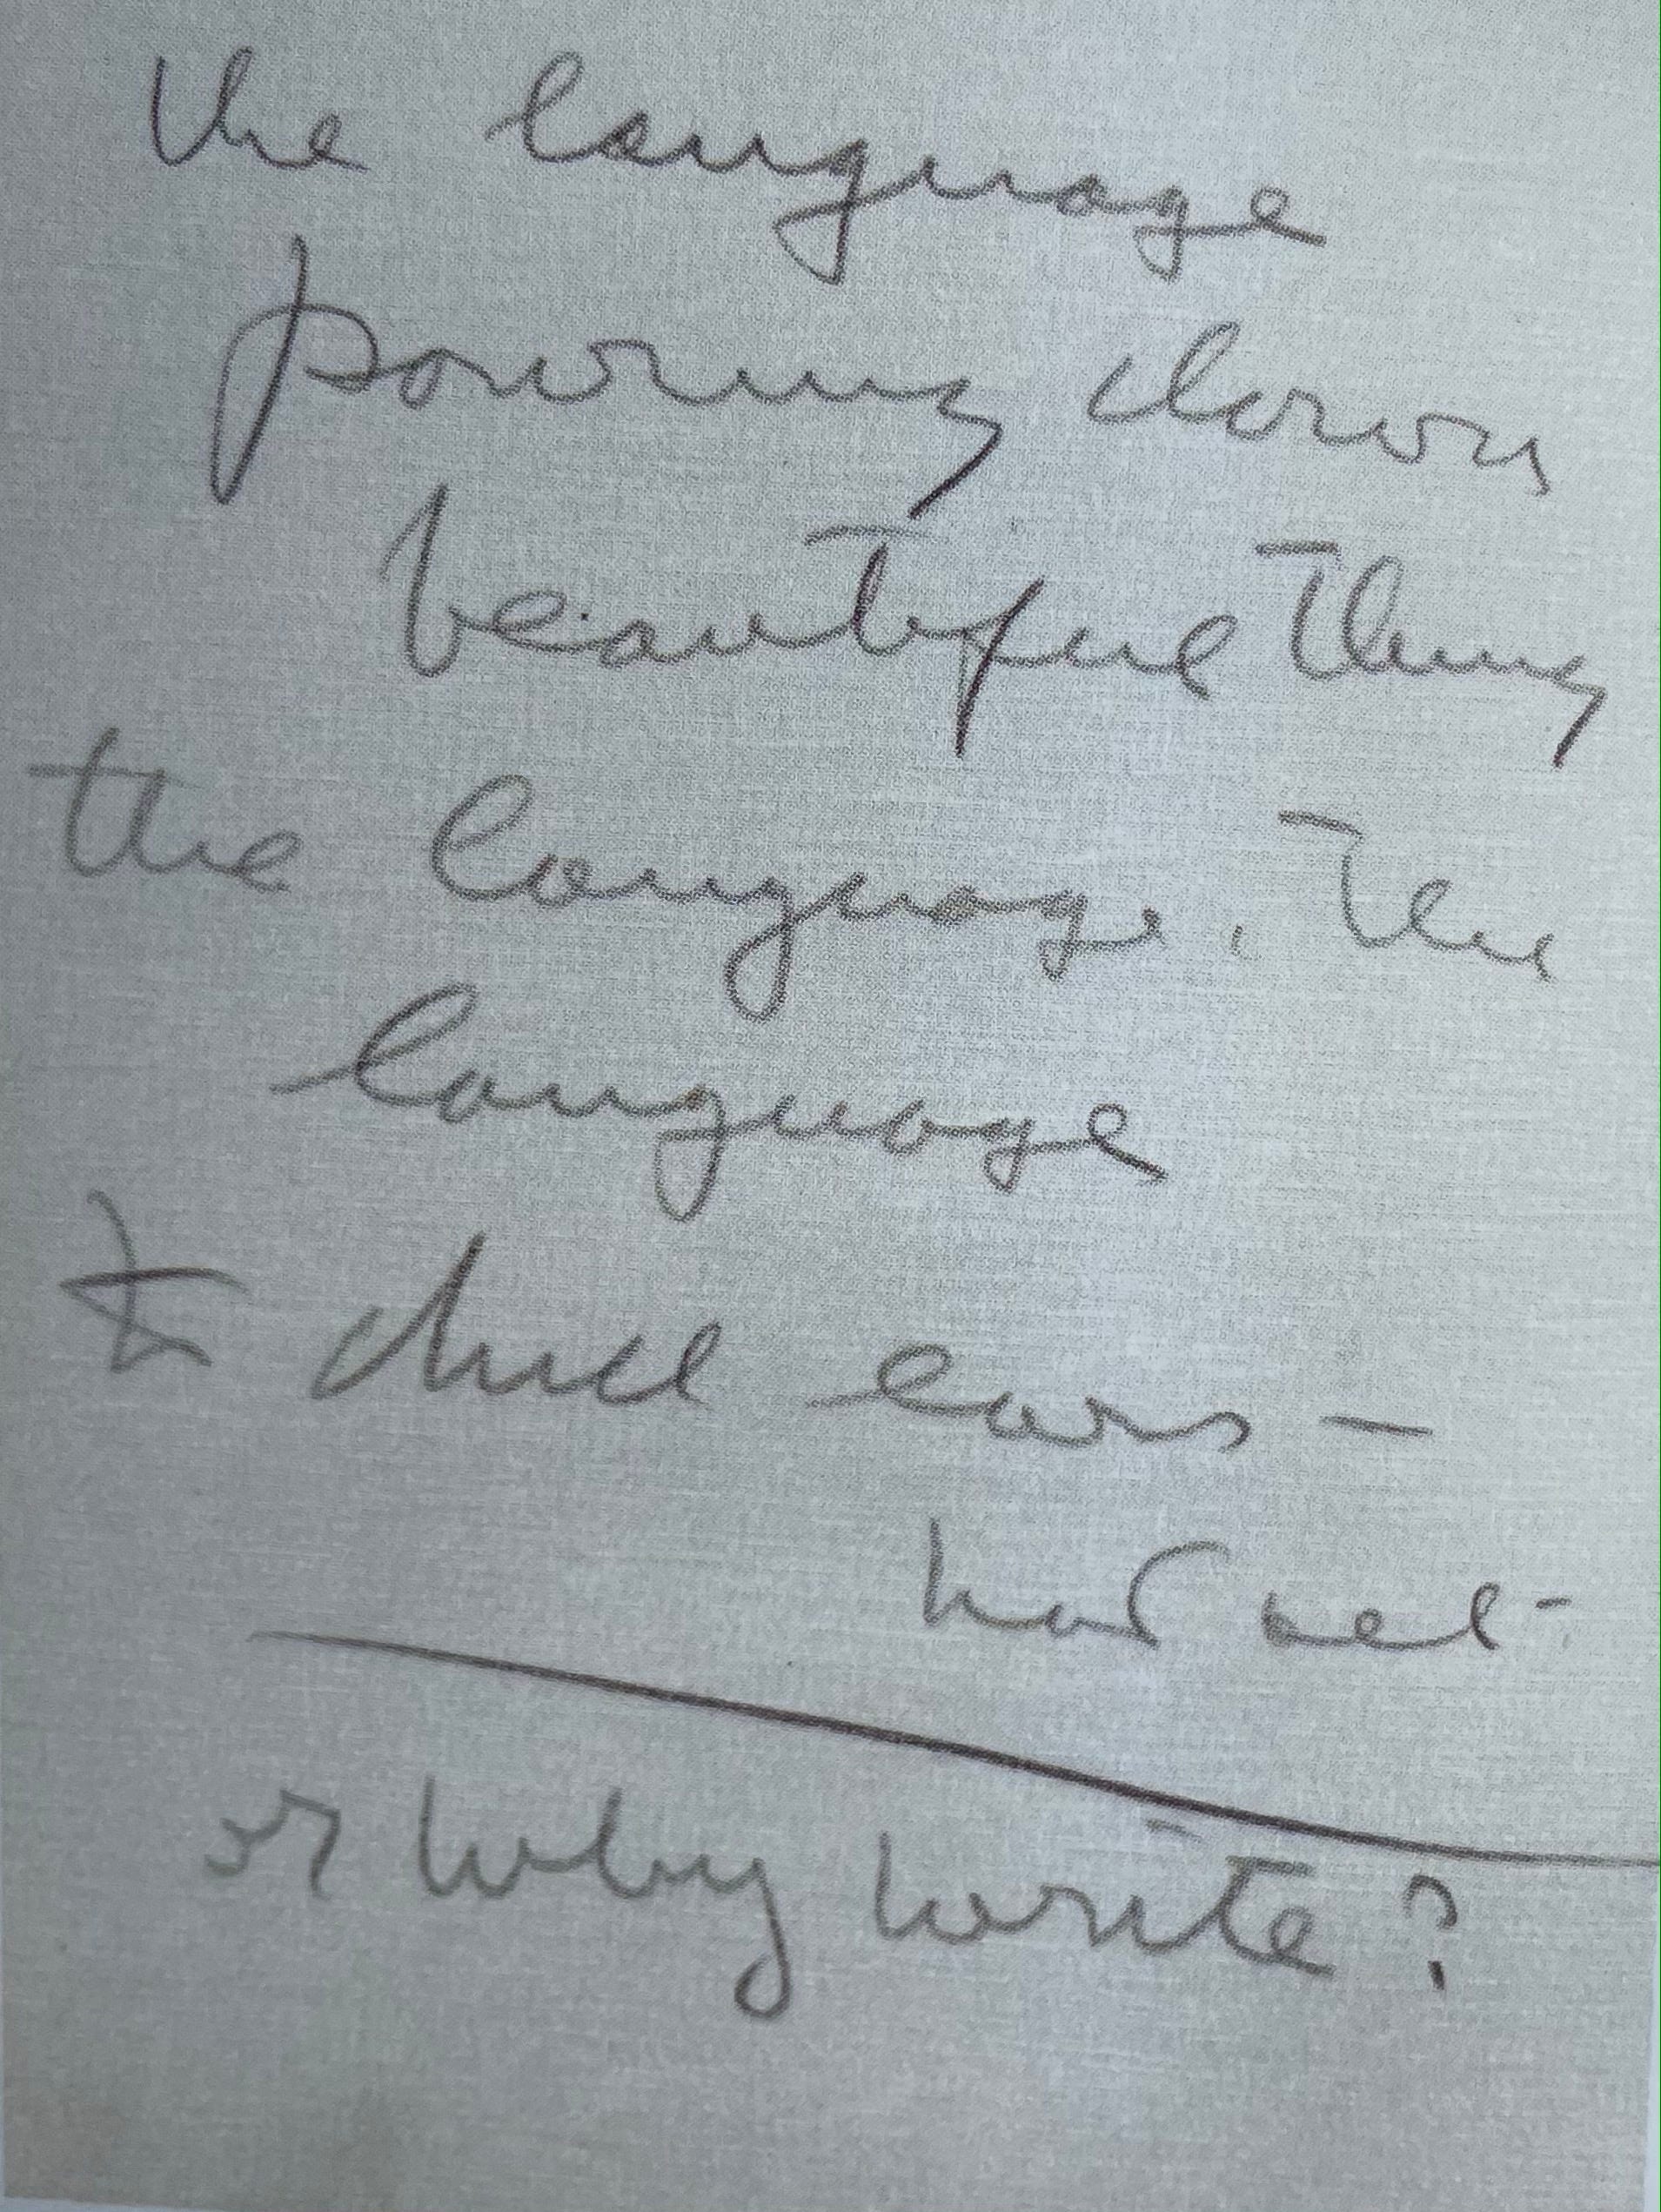 the language
pouring down
beautiful thing
the language, the
language
to dull ears —
not all -
or why write?